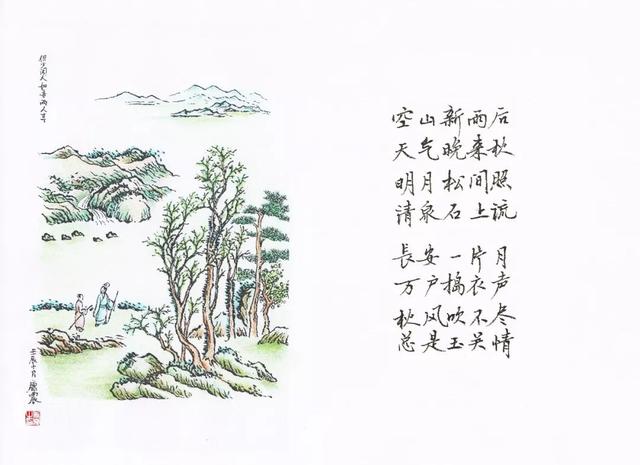 但少闲人如吾两人耳
壬辰十月
空山新雨后
天气晚来秋
明月松间照
清泉石上流
長安一片月
万户捣衣声
秋风吹不尽
总是玉关情